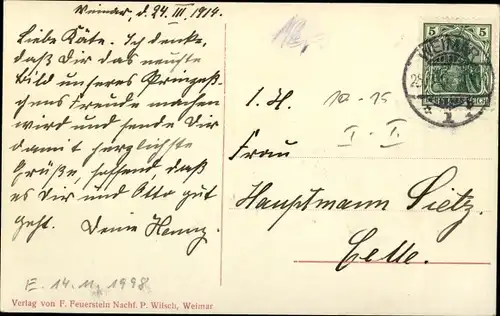 Weimar, d. 24. III. 1914.
Liebe Käte. Ich denke,
daß Dir das neueste
Bild unseres Prinzeß-
chens Freude machen
wird und sende Dir
damit herzlichste
Grüße, hoffend, daß
es Dir und Otto gut
geht. Deine Henny.
E. 14. 11. 1998
Verlag von F. Feuerstein Nachf. P. Witsch, Weimar
5 5
WEIMAR
1
I. H.
10-15
I-I
Frau
Hauptmann Sietz.
Celle.